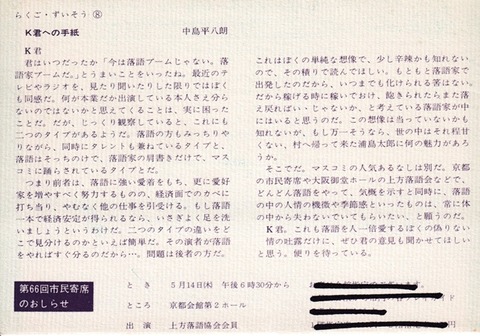 らくご・ずいそう ⑧
K君への手紙
中島平八朗
K君
君はいつだったか「今は落語ブームじゃない。落
語家ブームだ。」とうまいことをいったね。最近のテ
レビやラジオを、見たり聞いたりした限りではぼく
も同感だ。何が本業だか出演している本人さえ分ら
ないのではないかと思えてくることは、実に困った
ことだ。だが、じっくり観察していると、これにも
二つのタイプがあるようだ。落語の方もみっちりや
りながら、同時にタレントも兼ねているタイプと、
落語はそっちのけで、落語家の肩書きだけで、マス
コミに踊らされているタイプとだ。
つまり前者は、落語に強い愛着をもち、更に愛好
家を増やすべく努力するものの、経済面でのカベに
打ち当り、やむなく他の仕事を引受ける。もし落語
一本で経済安定が得られるなら、いさぎよく足を洗
いましょうというわけだ。二つのタイプの違いをど
こで見分けるのかといえば簡単だ。その演者が落語
をやればすぐ分るのだから…。問題は後者の方だ。
これはぼくの単純な想像で、少し辛辣かも知れない
ので、その積りで読んでほしい。もともと落語家で
出発したのだから、いつまでも化けられる筈はない。
だから稼げる時に稼いでおけ、飽きられたらまた落
え戻ればい・じゃないか、と考えている落語家が中
にはいると思うのだ。この想像は当っていないかも
知れないが、もし万一そうなら、世の中はそれ程甘
くない、村へ帰って来た浦島太郎に何の魅力があろ
うか。
そこでだ。マスコミの人気あるなしは別だ。京都
の市民寄席や大阪御堂ホールの上方落語会などで、
どんどん落語をやって、気慨を示すと同時に、落語
の中の人情の機微や季節感といったものは、常に体
の中から失わないでいてもらいたい、と願うのだ。
K君。これも落語を人一倍愛するぼくの偽りない
情の吐露だけに、ぜひ君の意見も聞かせてほしい
と思う。便りを待っている。
第66回市民寄席
のおしらせ
とき 5月14日(木) 午後6時30分から
ところ 京都会館第2ホール
出演 上方落語協会会員